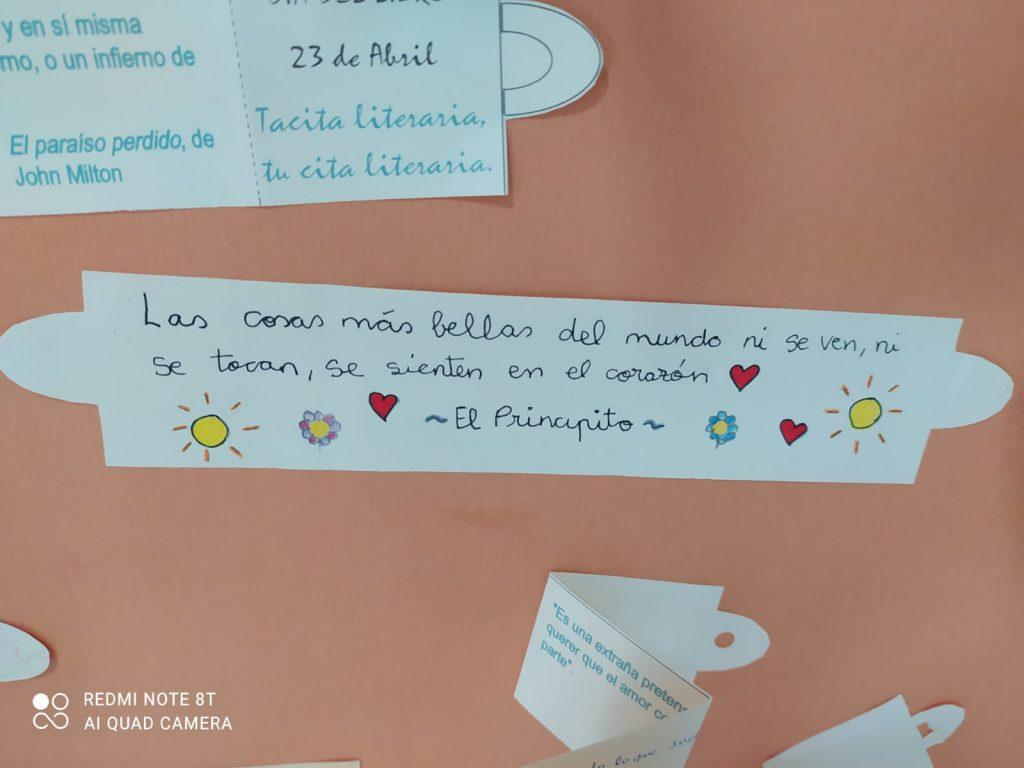 y en sí misma
o un infierno de
El paraíso perdido, de
John Milton
23 de Abril
Tacita literaria,
tu cita literaria.
Las cosas más bellas del mundo ni se ven, ni
se tocan, se sienten en el corazón
~El Principito~
"Es una extraña
querer que el amor
parte".
lo que
REDMI NOTE 8T
AI QUAD CAMERA